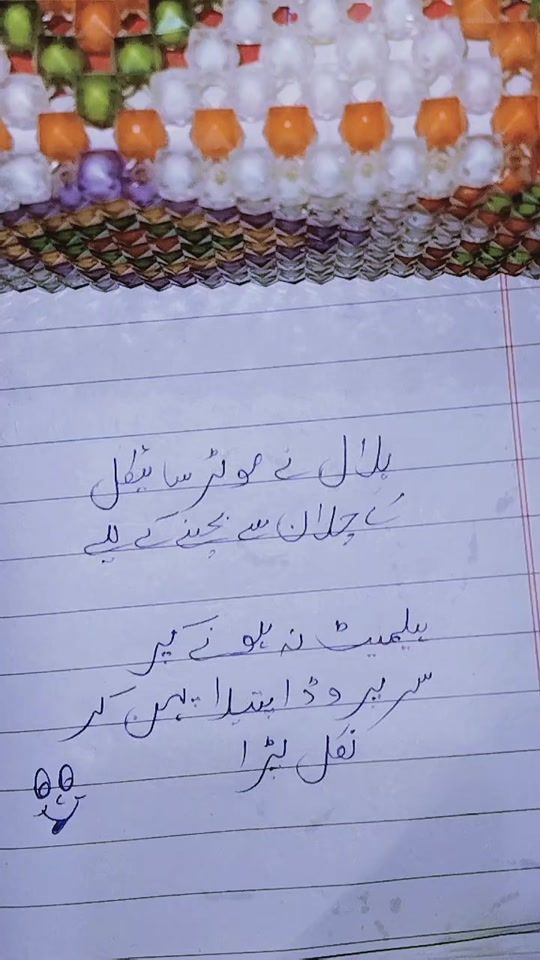 بلال نے موٹر سائیکل
کے چلان سے بچنے کے لیے
ہیلمیٹ نہ ہونے پر
سر پر وڈا پتیلا پہن کر
نکل پڑا